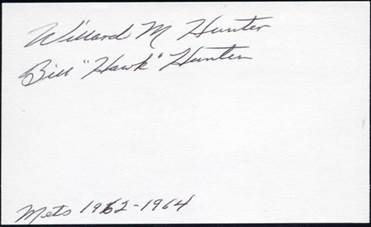 Willard M Hunter
Bill "Hawk" Hunter
Mets 1962-1964